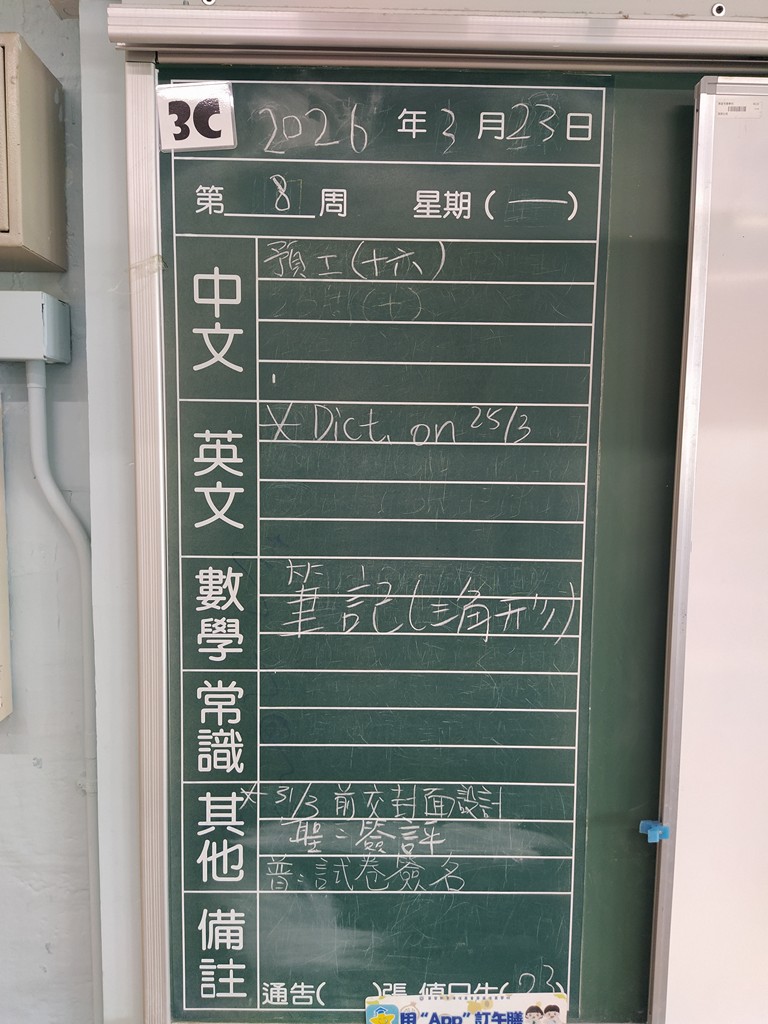 3C
2026年3月23日
第 8 周 星期(一)
中文
預工(十六)
英文
* Dict. on 25/3
數學
筆記(三角形)
常識
其他
* 31/3前交封面設計
聖:簽評
普:試卷簽名
備註
通告( )張 值日生(23)
用“App”訂午膳